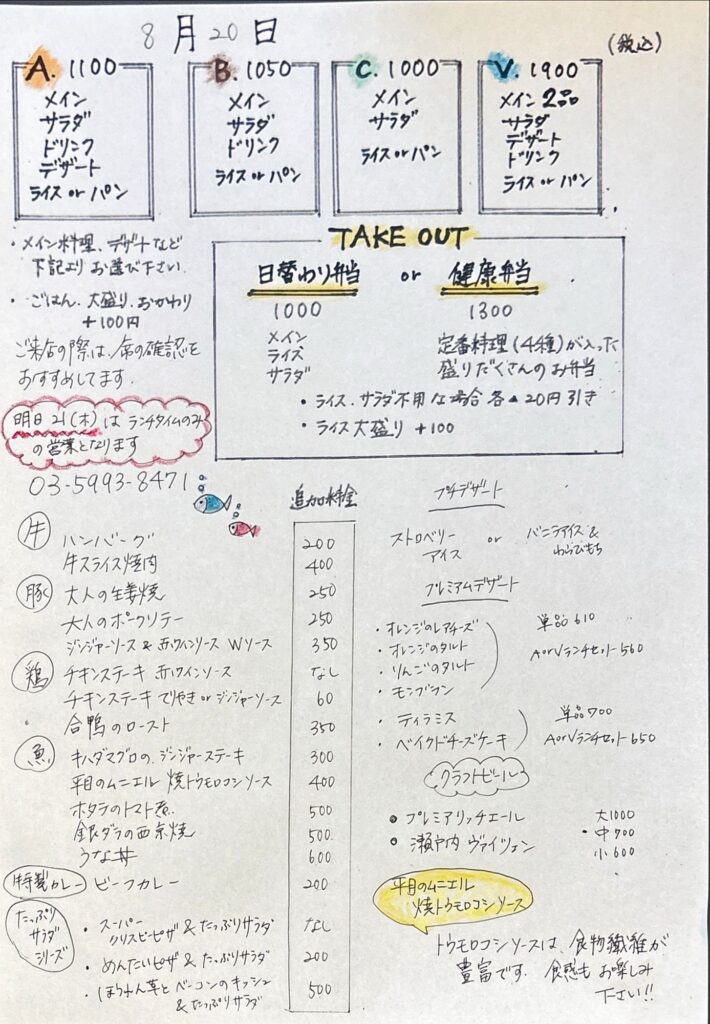 8月20日
(税込)
A. 1100
メイン
サラダ
ドリンク
デザート
ライス or パン
B. 1050
メイン
サラダ
ドリンク
ライス or パン
C. 1000
メイン
サラダ
ライス or パン
V. 1900
メイン 2品
サラダ
デザート
ドリンク
ライス or パン
・メイン料理、デザートなど
下記よりお選び下さい.
・ごはん.大盛り.おかわり
+100円
ご来店の際は、席の確認を
おすすめしてます.
明日21(木)はランチタイムのみ
の営業となります
03-5993-8471
TAKE OUT
日替わり弁当 or 健康弁当
1000
メイン
ライス
サラダ
1300
定番料理(4種)が入った
盛りだくさんのお弁当
・ライス.サラダ不用な場合 各▲20円引き
・ライス大盛り +100
追加料金
牛 ハンバーグ 200
牛スライス焼肉 400
豚 大人の生姜焼 250
大人のポークソテー 250
ジンジャーソース & 赤ワインソース Wソース 350
鶏 チキンステーキ 赤ワインソース なし
チキンステーキ てりやき or ジンジャーソース 60
・合鴨のロースト 350
魚 キハダマグロの.ジンジャーステーキ 300
平目のムニエル 焼トウモロコシソース 400
ホタテのトマト煮. 500
銀ダラの西京焼 500.
うな丼 600
特製カレー ビーフカレー 200
たっぷり
サラダ
シリーズ
・スーパー
クリスピーピザ & たっぷりサラダ なし
・めんたいピザ & たっぷりサラダ 200
・ほうれん草とベーコンのキッシュ
& たっぷりサラダ 500
プチデザート
ストロベリー
アイス
or
バニラアイス &
わらびもち
プレミアムデザート
・オレンジのレアチーズ
・オレンジのタルト
・りんごのタルト
・モンブラン
単品 610
AorVランチセット 560
・ティラミス
・ベイクドチーズケーキ
単品 700
AorVランチセット 650
クラフトビール
● プレミアリッチエール
● 瀬戸内 ヴァイツェン
大1000
・中700
小600
平目のムニエル
焼トウモロコシソース
トウモロコシソースは、食物繊維が
豊富です. 食感もお楽しみ
下さい!!